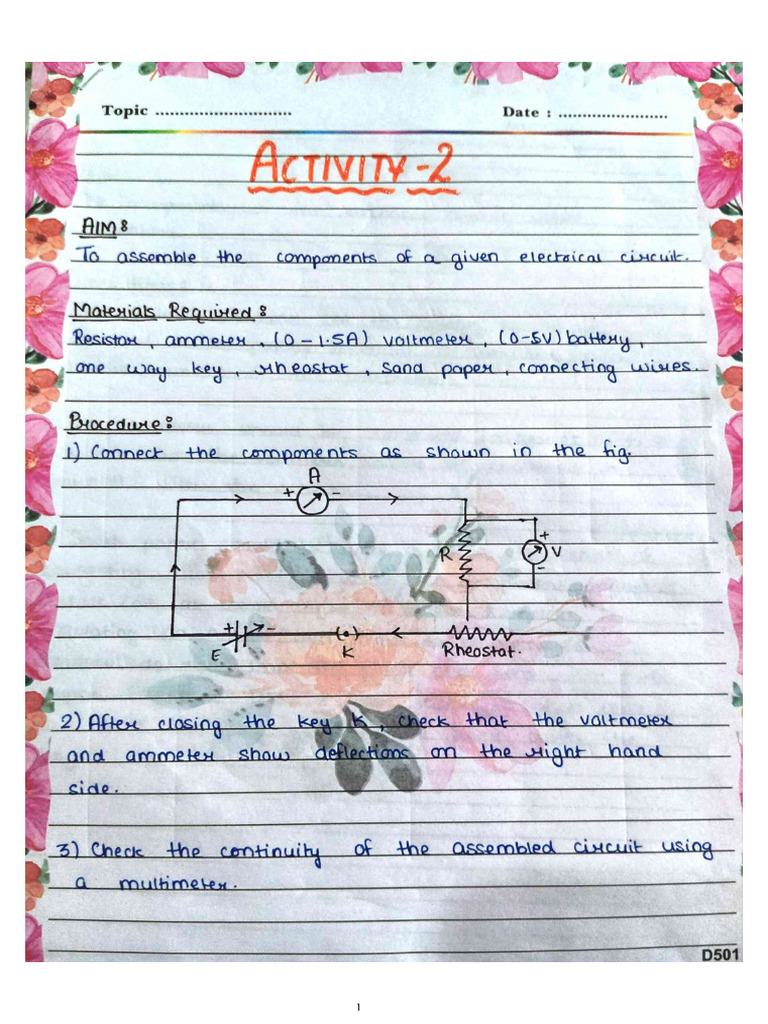 Topic ............................
Date : .......................
ACTIVITY-2
AIM:
To assemble the components of a given electrical circuit.
Materials Required:
Resistor, ammeter, (0-1.5A) voltmeter, (0-5V) battery,
one way key, rheostat, sand paper, connecting wires.
Procedure:
1) Connect the components as shown in the fig.
A
+ -
R
+
V
-
+ -
E
(•)
K
Rheostat.
2) After closing the key K, check that the voltmeter
and ammeter show deflections on the right hand
side.
3) Check the continuity of the assembled circuit using
a multimeter.
D501
1